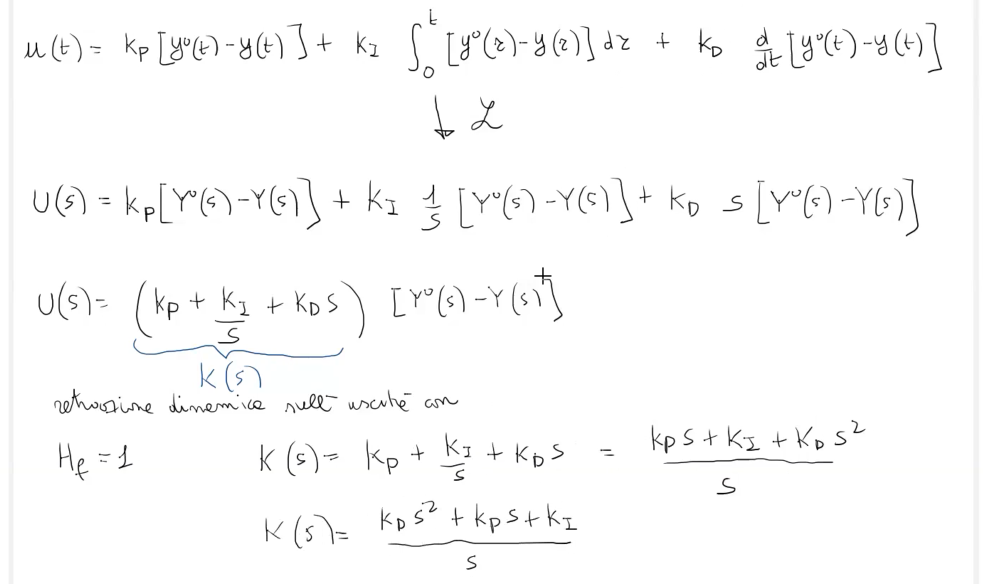 u(t) = kP [y°(t) - y(t)] + kI ∫₀ᵗ [y°(τ) - y(τ)] dτ + kD d/dt [y°(t) - y(t)]
↓ ℒ
U(s) = kP [Y°(s) - Y(s)] + kI 1/s [Y°(s) - Y(s)] + kD s [Y°(s) - Y(s)]
U(s) = (kP + kI/s + kD s) [Y°(s) - Y(s)]
K(s)
retroazione dinamica sull' uscita con
Hf = 1 K(s) = kP + kI/s + kD s = (kP s + kI + kD s²)/s
K(s) = (kD s² + kP s + kI)/s